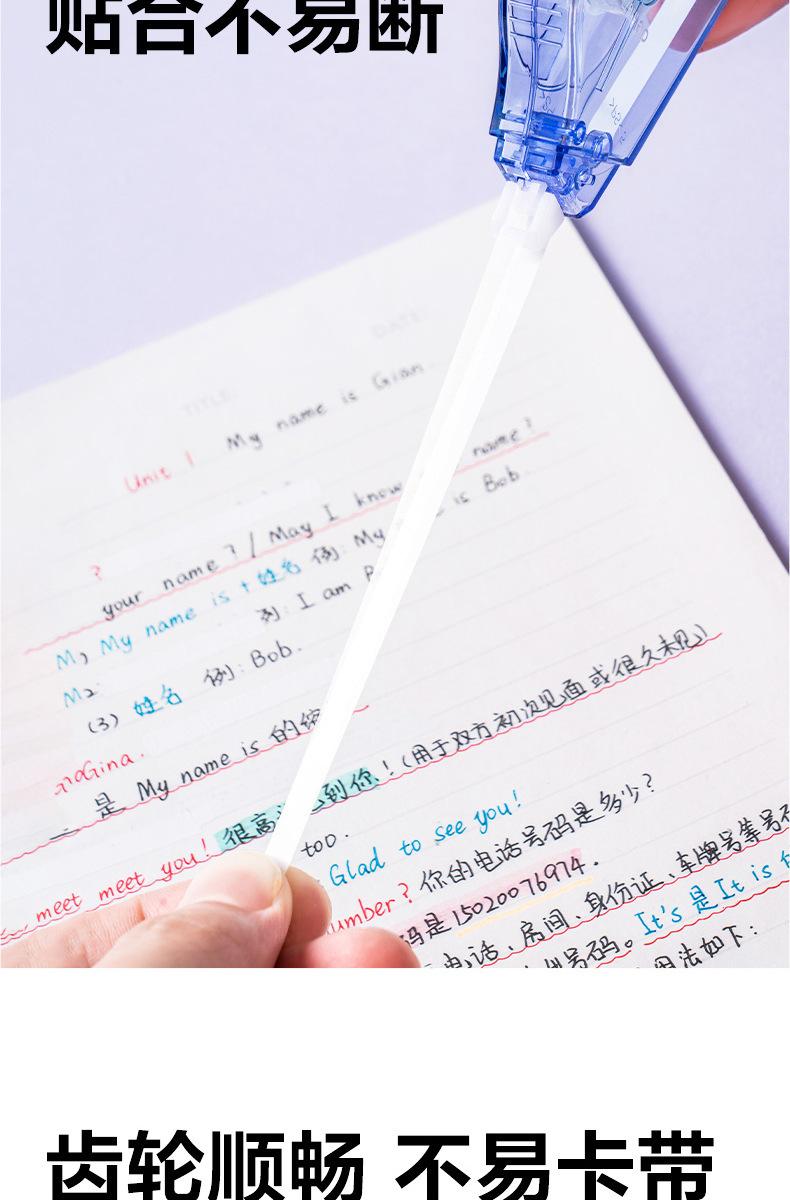 贴合不易断
DATE:
TITLE:
Unit 1 My name is Gian
name?
?
your name? / May I know
is Bob.
M1 My name is + 姓名 例: My
M2: 例: I am B
(3) 姓名 例: Bob.
Gina.
是 My name is 的缩
meet meet you! 很高 到你!(用于双方初次见面或很久未见)
too.
Glad to see you!
number? 你的电话号码是多少?
码是15020076974.
电话、房间、身份证、车牌号等号
号码。It's是It is
用法如下:
齿轮顺畅 不易卡带